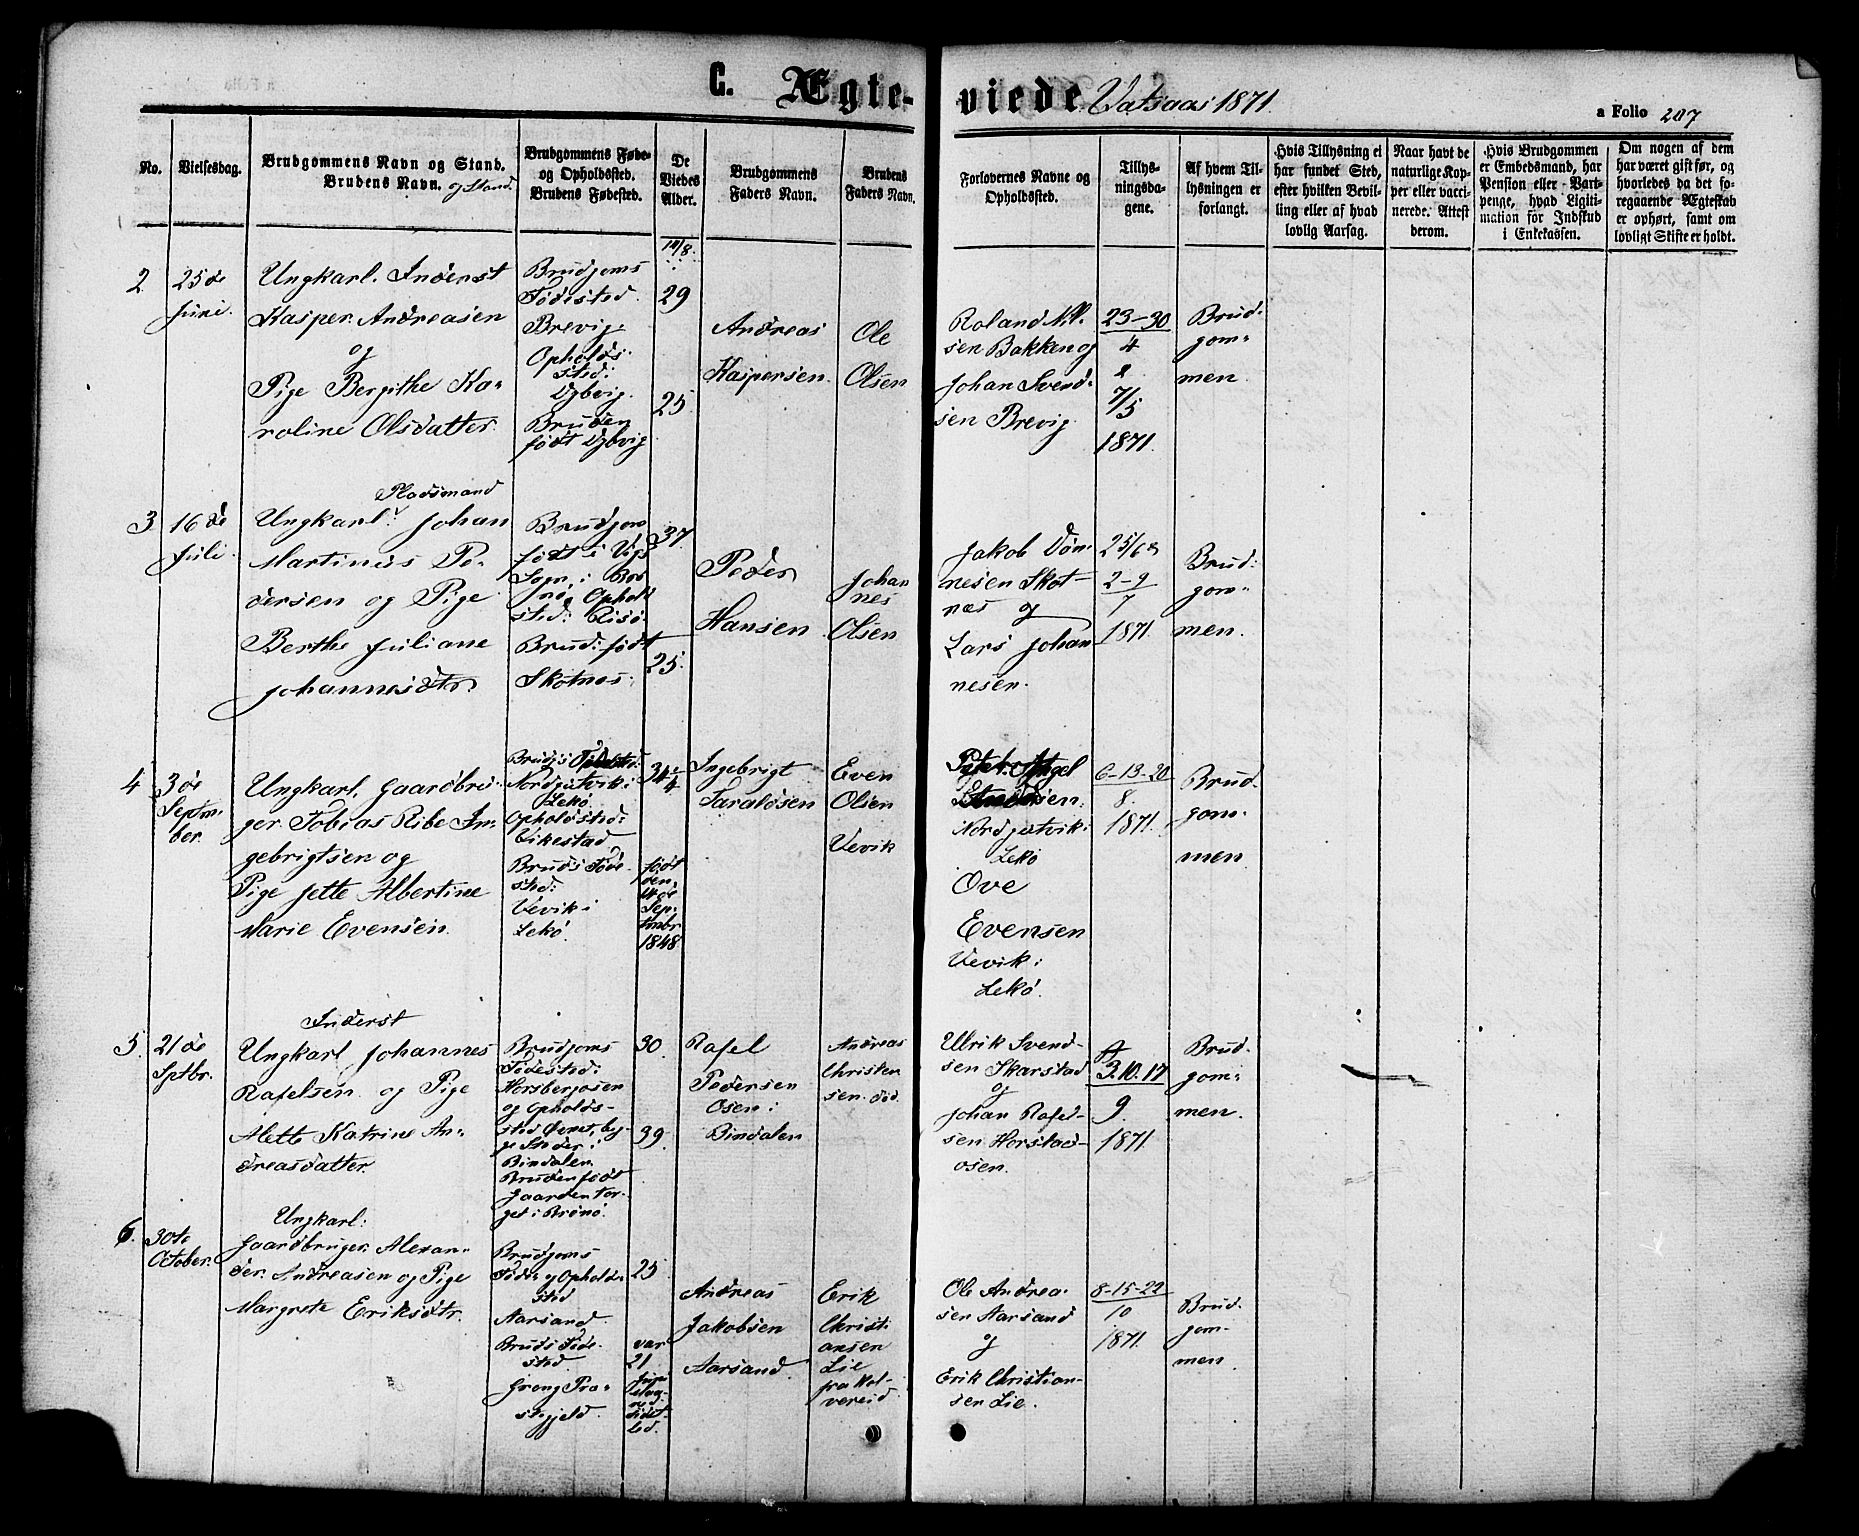 C. Ægteviede Vatsaas 1871.
a Folio 207
No.
Vielsesdag.
Brudgommens Navn og Stand.
Brudens Navn. og Stand.
Brudgommens Føde-
og Opholdssted.
Brudens Fødested.
De
Viedes
Alder.
Brudgommens
Faders Navn.
Brudens
Faders Navn.
Forlovernes Navne og
Opholdssted.
Tillys-
ningsda-
gene.
Af hvem Til-
lysningen er
forlangt.
Hvis Tillysning ei
har fundet Sted,
efter hvilken Bevil-
ling eller af hvad
lovlig Aarsag.
Naar havt de
naturlige Kop-
per eller vacci-
nerede. Attest
derom.
Hvis Brudgommen
er Embedsmand, har
Pension eller Vart-
penge, hvad Ligiti-
mation for Indskud
i Enkekassen.
Om nogen af dem
har været gift før, og
hvorledes da det fo-
regaaende Ægteskab
er ophørt, samt om
lovligt Skifte er holdt.
2.
25de
Juni.
Ungkarl. Inderst
Kasper Andreasen
og
Pige Bergithe Ka-
roline Olsdatter.
Brudgoms
Fødested.
Brevig.
Opholds-
sted:
Dybvig.
Bruden
født Dybvig
29
25.
Andreas
Kaspersen.
Ole
Olsen
Roland Nil-
sen Bakken og
Johan Svend-
sen Brevig.
23-30
4
&
7/5
1871.
Brud-
gom-
men.
3.
16de
Juli.
Pladsmand
Ungkarl. Johan
Martinus Pe-
dersen og Pige
Berthe Juliane
Johannesdtr.
Brudgom
født i Vigs
Sogn,
Opholds
sted: Risø.
Brud: født
Skotnes.
37.
25.
Peder
Hansen
Johan
nes
Olsen
Jakob Døn-
nesen Skot-
næs og
Lars Johan
nesen.
25/6 &
2-9
7
1871.
Brud-
gom-
men.
4.
3de
Septem-
ber.
Ungkarl. Gaardbru-
ger Tobias Ribe In-
gebrigtsen og
Pige Jette Albertine
Marie Evensen.
Brudgs Fødested:
Nordgjestvik i
Lekø.
Opholdsted:
Vikestad
Bruds Føde-
sted:
Vevik i
Lekø.
født
den
Sep-
tembr
1848
Ingebrigt
Taraldsen
Even
Olsen
Vevik
Nordgjestvik i
Lekø
Ove
Evensen
Vevik i
Lekø.
6-13-20
8.
1871.
Brud-
gom-
men.
5.
21de
Sptbr.
Inderst
Ungkarl. Johannes
Rafelsen og Pige
Alette Katrine An-
dreasdatter.
Brudgoms
Fødested:
Horsbergosen
og Opholds-
sted Øvret, beg-
ge Steder i
Bindalen.
Bruden født
Gaarden Tor-
get i Brønø.
30.
39.
Rafel
Pedersen
Osen i
Bindalen
Andreas
Christen
sen. død.
Ulrik Svend-
sen Skarstad
og
Johan Rafel-
sen Horstad-
osen.
3.10.17
9.
1871.
Brud-
gom-
men.
6.
30te
October.
Ungkarl:
Gaardbruger. Alexan-
der Andreasen og Pige
Margrete Eriksdtr.
Brudgoms
Føde- og Opholds-
sted
Aarsand.
Bruds Føde-
sted
Grong Præ-
stegjeld.
25.
var
21
Andreas
Jakobsen
Aarsand.
Erik
Christi-
ansen
Lie
fra Kol-
vereid.
Ole Andrea-
sen Aarsand
og
Erik Christian-
sen Lie.
8-15-22
10
1871.
Brud-
gom-
men.